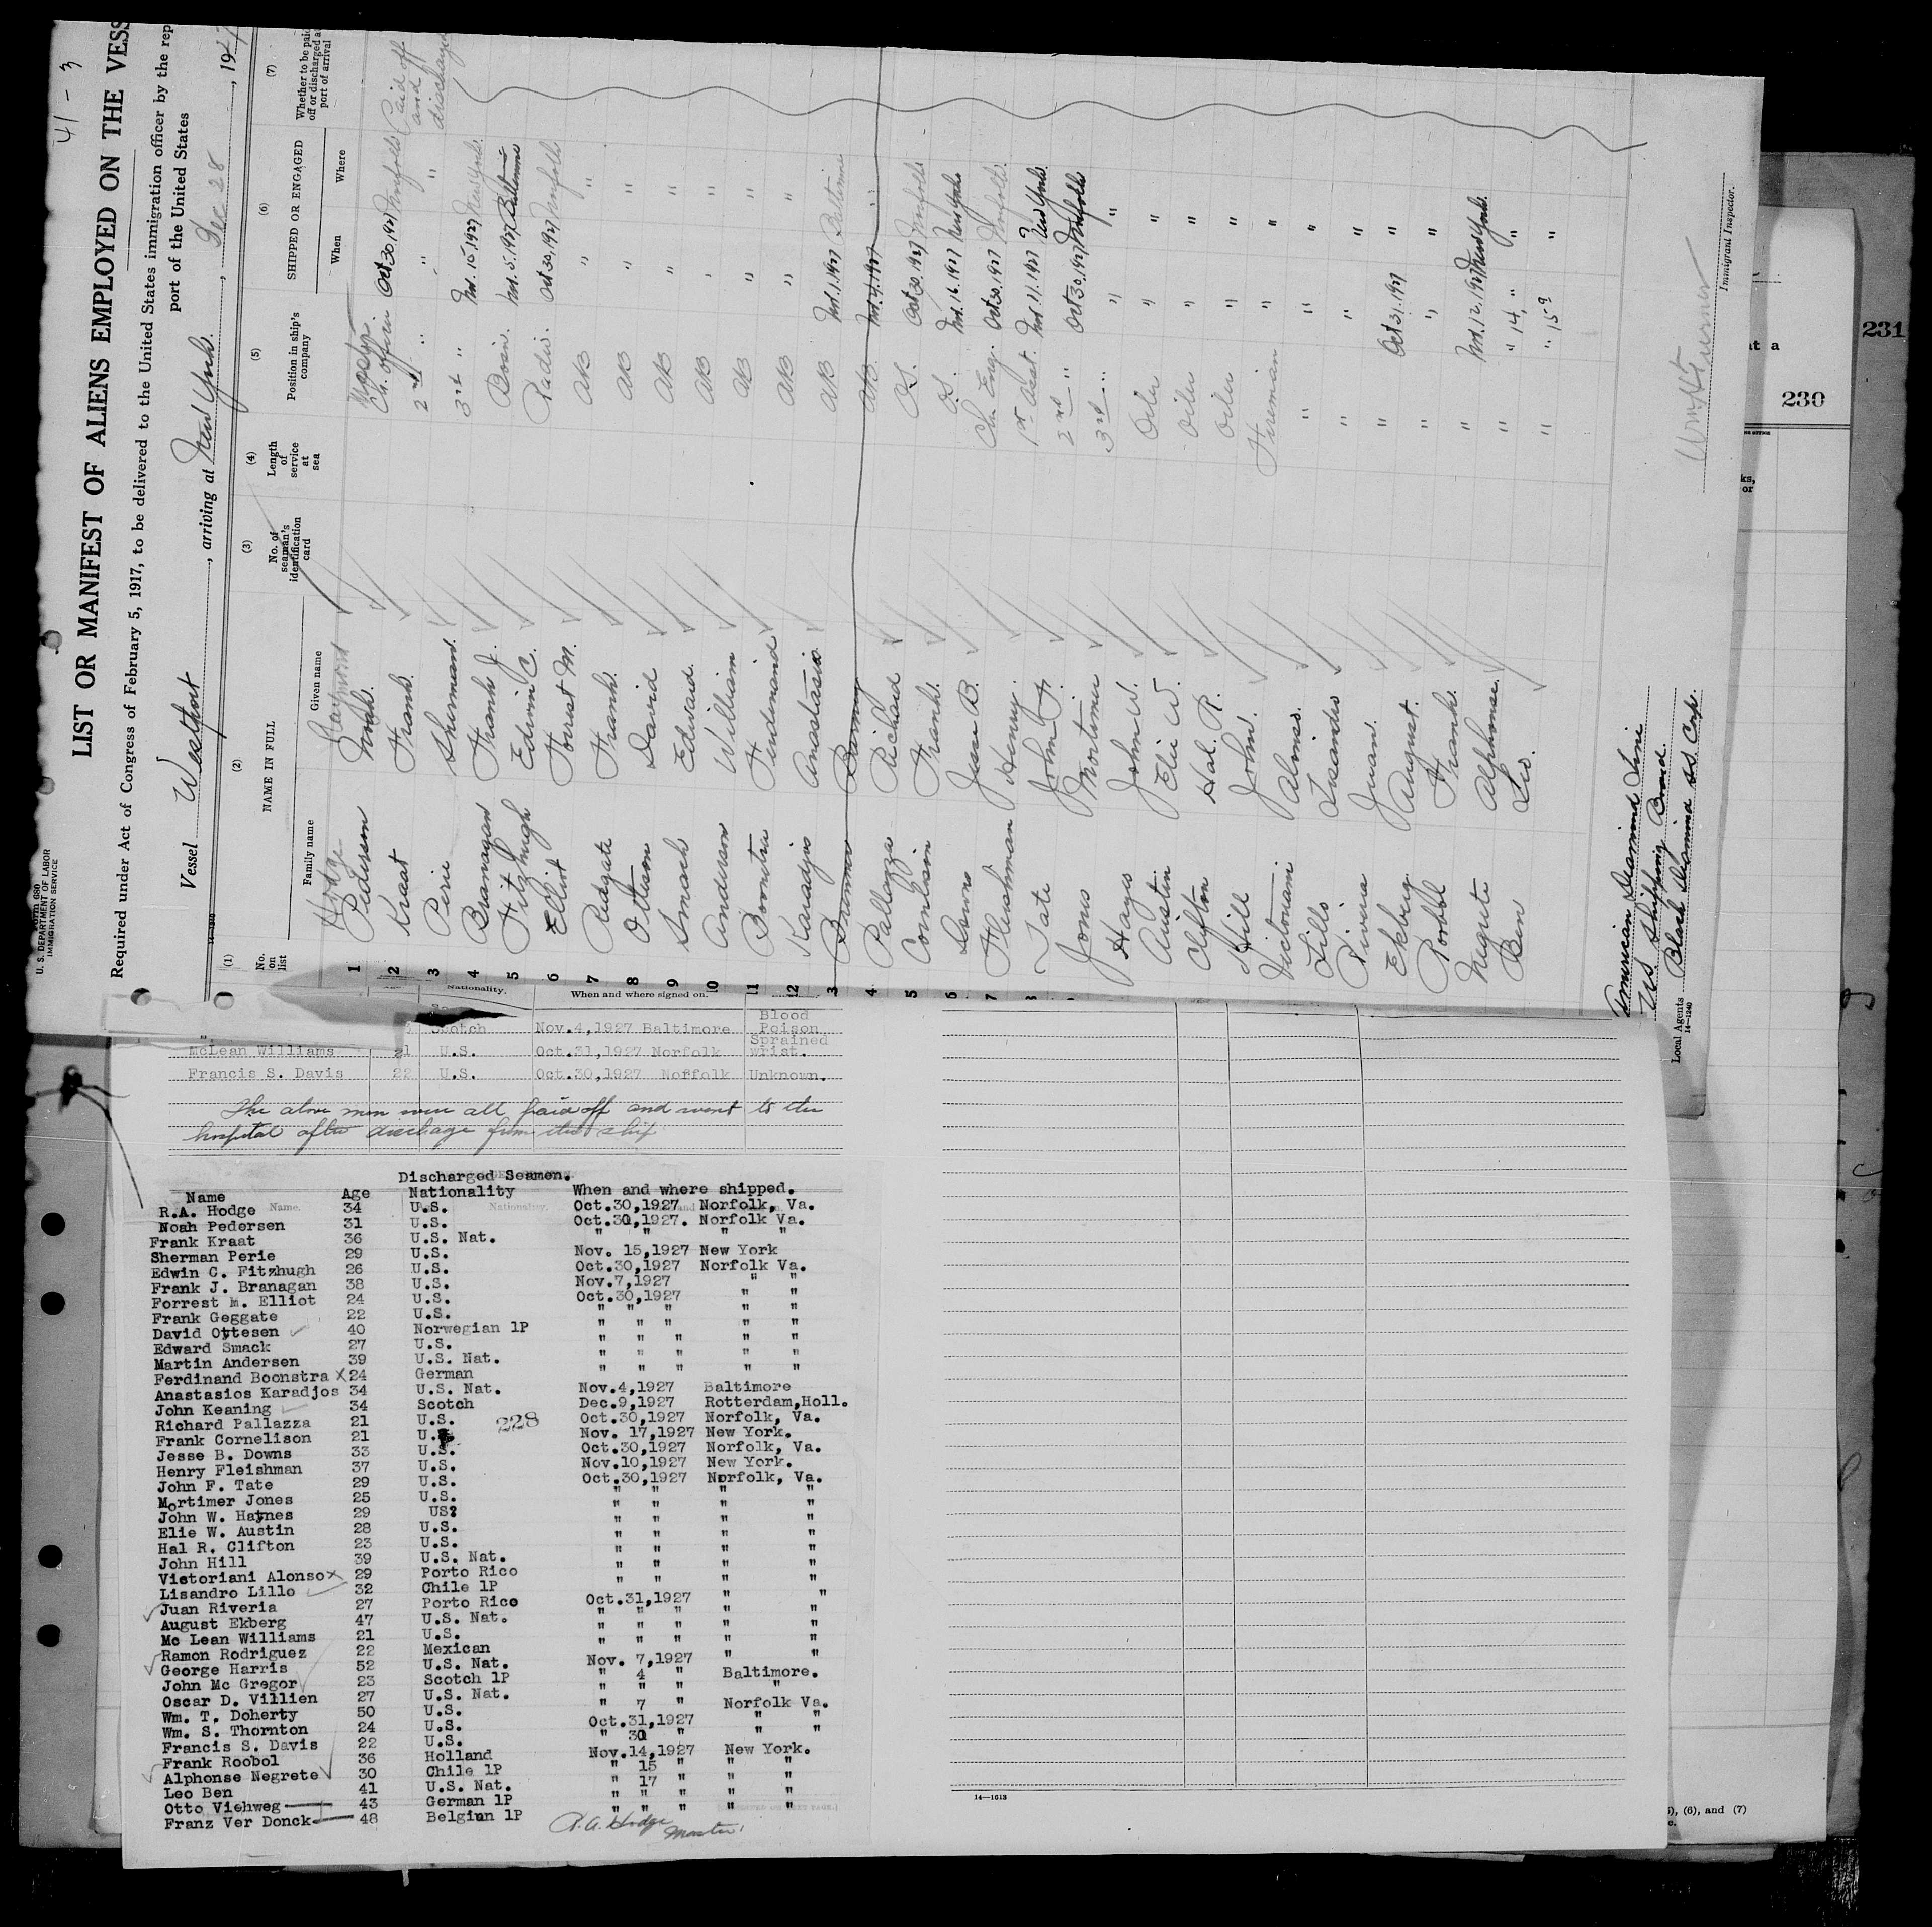 41 - 3
U. S. DEPARTMENT OF LABOR
IMMIGRATION SERVICE
LIST OR MANIFEST OF ALIENS EMPLOYED ON THE VESS
Required under Act of Congress of February 5, 1917, to be delivered to the United States immigration officer by the rep
port of the United States
Vessel Westport, arriving at New York., Dec 28, 1927
(1) (2) (3) (4) (5) (6) (7)
No. on list NAME IN FULL No. of seaman's identification card Length of service at sea Position in ship's company SHIPPED OR ENGAGED Whether to be paid off or discharged at port of arrival
Family name Given name When Where
Hodge Master
1 Pedersen Noah. Ch. officer Oct 30, 1927 Norfolk Paid off and discharged
2 Kraat Frank. 2nd " " "
3 Perie Sherman. 3rd " Nov. 15, 1927 New York.
4 Branagan Frank J. Bosn. Nov. 5, 1927 Baltimore
5 Fitzhugh Edwin C. Radio. Oct 30, 1927 Norfolk
6 Elliot Forrest M. AB " "
7 Frank. AB " "
8 Ottesen David AB " "
9 Smack Edward. AB " "
10 Anderson William AB " "
11 Boonstra Ferdinand AB " "
12 Karadjos Anastasios AB Nov. 1, 1927 Baltimore
3 AB. Nov. 4, 1927 "
4 Pallazza Richard OS. Oct 30, 1927 Norfolk
5 Cornelison Frank. OS. Nov. 16, 1927 New York.
6 Downs Jesse B. Ch. Eng. Oct 30, 1927 Norfolk.
7 Fleishman Henry. 1st Asst. Nov. 11, 1927 New York.
8 Tate John F. 2nd " Oct 30, 1927 Norfolk
Jones Mortimer 3rd " " "
Hayes John W. Oiler " "
Austin Elie W. Oiler " "
Clifton Hal. R. Oiler " "
Hill John. Fireman " "
Victoriani Alonso. " " "
Lillo Lisandro " " "
Rivera Juan. " Oct 31, 1927 "
Ekberg August. " " "
Roobol Frank. " Nov. 12, 1927 New York.
Negrete Alphonse. " " 14, " "
Ben Leo. " " 15 "
American Diamond Line
US Shipping Board
Local Agents Black Diamond SS Corp
14—1240
Immigrant Inspector.
231
230
at a
ks,
or
Nationality. When and where signed on.
Scotch Nov.4,1927 Baltimore Blood Poison
McLean Williams 21 U.S. Oct.31,1927 Norfolk Sprained wrist.
Francis S. Davis 22 U.S. Oct.30,1927 Norfolk Unknown.
The above men were all paid off and went to the
hospital after discharge from this ship
Discharged Seamen.
Name Age Nationality When and where shipped.
R.A. Hodge 34 U.S. Oct.30,1927 Norfolk, Va.
Noah Pedersen 31 U.S. Oct.30,1927. Norfolk Va.
Frank Kraat 36 U.S. Nat. " " " "
Sherman Perie 29 U.S. Nov. 15,1927 New York
Edwin C. Fitzhugh 26 U.S. Oct.30,1927 Norfolk Va.
Frank J. Branagan 38 U.S. Nov.7,1927 " "
Forrest m. Elliot 24 U.S. Oct.30,1927 " "
Frank Geggate 22 U.S. " " " " "
David Ottesen 40 Norwegian 1P " " " " "
Edward Smack 27 U.S. " " " " "
Martin Andersen 39 U.S. Nat. " " " " "
Ferdinand Boonstra X 24 German " " " " "
Anastasios Karadjos 34 U.S. Nat. Nov.4,1927 Baltimore
John Keaning 34 Scotch Dec.9,1927 Rotterdam,Holl.
Richard Pallazza 21 U.S. 228 Oct.30,1927 Norfolk, Va.
Frank Cornelison 21 U.S. Nov. 17,1927 New York.
Jesse B. Downs 33 U.S. Oct.30,1927 Norfolk, Va.
Henry Fleishman 37 U.S. Nov.10,1927 New York.
John F. Tate 29 U.S. Oct.30,1927 Norfolk, Va.
Mortimer Jones 25 U.S. " " " "
John W. Haynes 29 US? " " " "
Elie W. Austin 28 U.S. " " " "
Hal R. Clifton 23 U.S. " " " "
John Hill 39 U.S. Nat. " " " "
Victoriani Alonso X 29 Porto Rico " " " "
Lisandro Lillo 32 Chile 1P " " " "
Juan Riveria 27 Porto Rico Oct.31,1927 " "
August Ekberg 47 U.S. Nat. " " " " "
Mc Lean Williams 21 U.S. " " " " "
Ramon Rodriguez 22 Mexican " " " " "
George Harris 52 U.S. Nat. Nov. 7,1927 " "
John Mc Gregor 23 Scotch 1P " 4 " Baltimore.
Oscar D. Villien 27 U.S. Nat. " " " "
Wm. T. Doherty 50 U.S. " 7 " Norfolk Va.
Wm. S. Thornton 24 U.S. Oct.31,1927 " "
Francis S. Davis 22 U.S. " 30 " " "
Frank Roobol 36 Holland Nov.14,1927 New York.
Alphonse Negrete 30 Chile 1P " 15 " " "
Leo Ben 41 U.S. Nat. " 17 " " "
Otto Viehweg 43 German 1P " " " " "
Franz Ver Donck 48 Belgian 1P " " " " "
R.A. Hodge Master.
14—1613
5), (6), and (7)